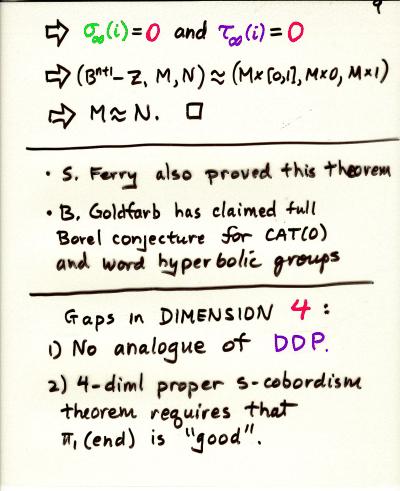 9
⇨ σ∞(i)=0 and τ∞(i)=0
⇨ (Bⁿ⁺¹-Z, M, N) ≈ (M×[0,1], M×0, M×1)
⇨ M≈N. □
• S. Ferry also proved this theorem
• B. Goldfarb has claimed full
Borel conjecture for CAT(0)
and word hyperbolic groups
Gaps in DIMENSION 4:
1) No analogue of DDP.
2) 4-diml proper s-cobordism
theorem requires that
π₁(end) is "good".